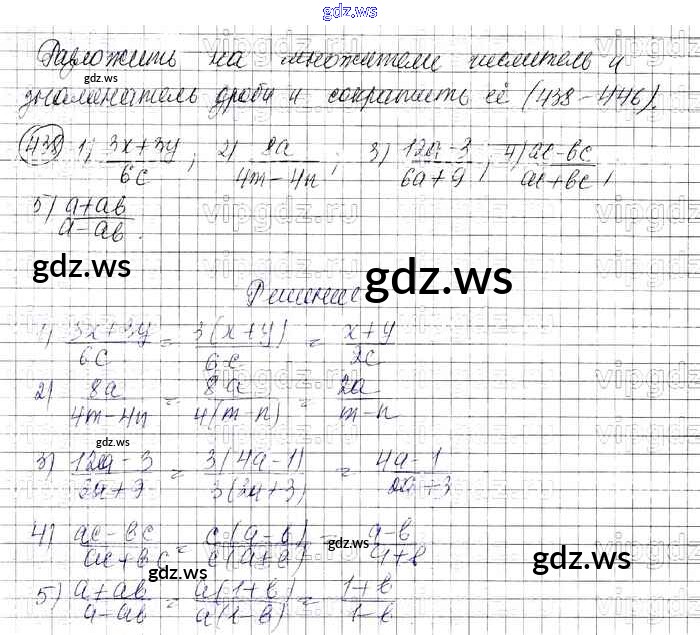 gdz.ws
Разложить на множители числитель и
знаменатель дроби и сократить её (438-446).
438 1) (3x+3y)/(6c); 2) 8a/(4m-4n); 3) (12a-3)/(6a+9); 4) (ac-bc)/(ac+bc);
5) (a+ab)/(a-ab).
gdz.ws gdz.ws
Решение
1) (3x+3y)/(6c) = 3(x+y)/(6c) = (x+y)/(2c)
2) 8a/(4m-4n) = 8a/(4(m-n)) = 2a/(m-n)
gdz.ws
3) (12a-3)/(6a+9) = 3(4a-1)/(3(2a+3)) = (4a-1)/(2a+3)
4) (ac-bc)/(ac+bc) = c(a-b)/(c(a+b)) = (a-b)/(a+b)
gdz.ws gdz.ws
5) (a+ab)/(a-ab) = a(1+b)/(a(1-b)) = (1+b)/(1-b)